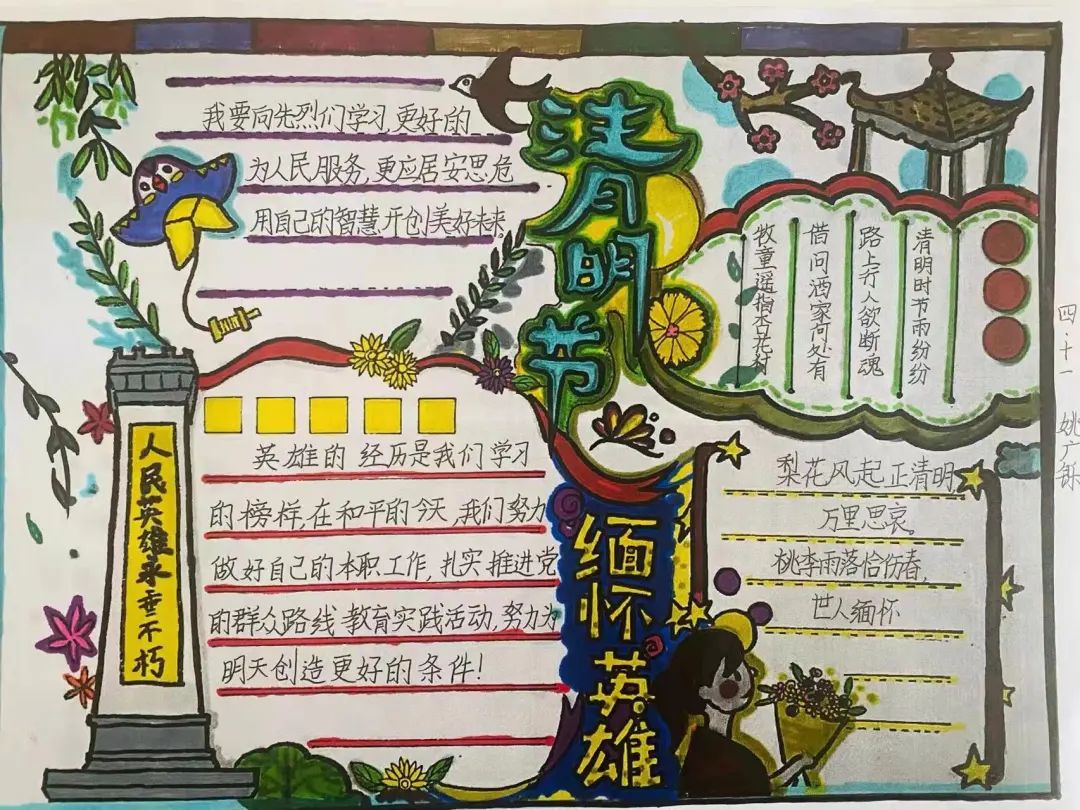 清明节
缅怀英雄
我要向先烈们学习更好的
为人民服务,更应居安思危
用自己的智慧开创美好未来
清明时节雨纷纷
路上行人欲断魂
借问酒家何处有
牧童遥指杏花村
人民英雄永垂不朽
英雄的经历是我们学习
的榜样,在和平的今天,我们努力
做好自己的本职工作,扎实推进党
的群众路线教育实践活动,努力为
明天创造更好的条件!
梨花风起正清明,
万里思哀。
桃李雨落恰伤春,
世人缅怀
四·十一 姚广铄